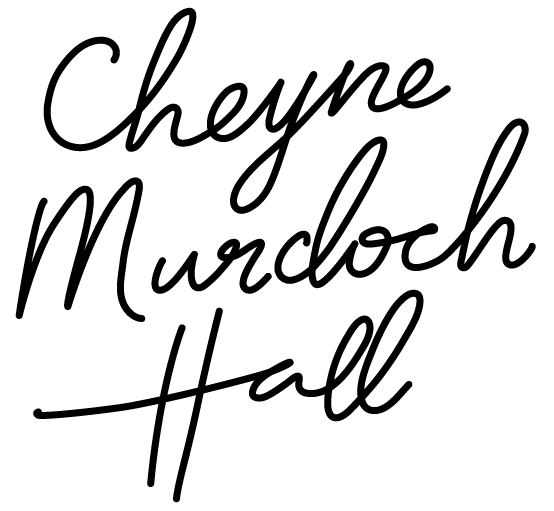 Cheyne
Murdoch
Hall